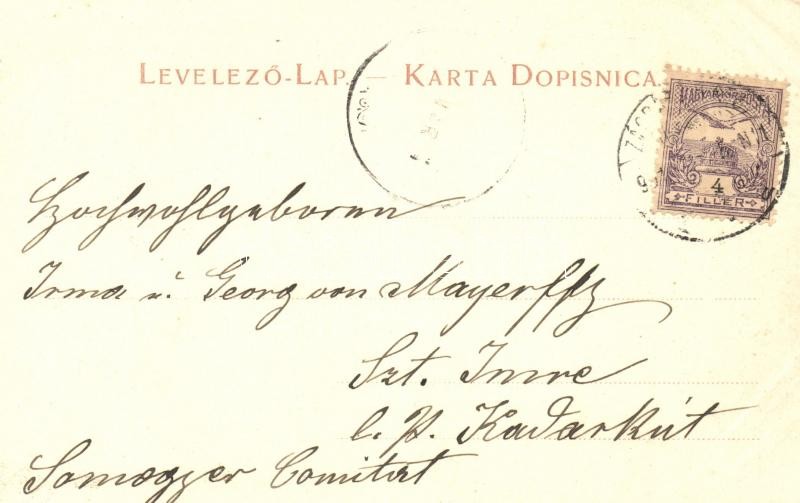 LEVELEZŐ-LAP. — KARTA DOPISNICA.
MAGYAR KIR. POSTA
4
FILLÉR
ZÁGRÁB
Hochwohlgeboren
Irma u. Georg von Mayerffy
Szt. Imre
l. P. Kadarkút
Somogyer Comitat